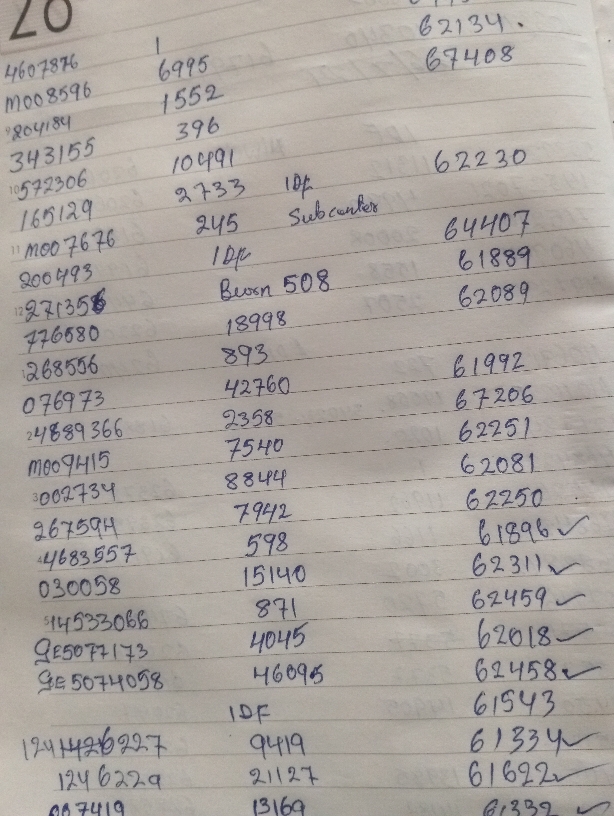 20
62134.
4607876 1 67408
M008596 6995
204184 1552
343155 396
572306 10491 62230
165129 2733 IDF
M007676 245 Subcenter 64407
200493 IDF 61889
271356 Burn 508 62089
776580 18998
268556 893 61992
076973 42760 67206
4889366 2358 62251
M009415 7540 62081
002734 8844 62250
267594 7942 61896 ✓
4683557 598 62311 ✓
030058 15140 62459 ✓
14533066 871 62018 ✓
9E5077173 4045 62458 ✓
9E5074058 46095 61543
IDF 61334 ✓
9419 61622 ✓
1246229 21127 61332 ✓
007419 13169